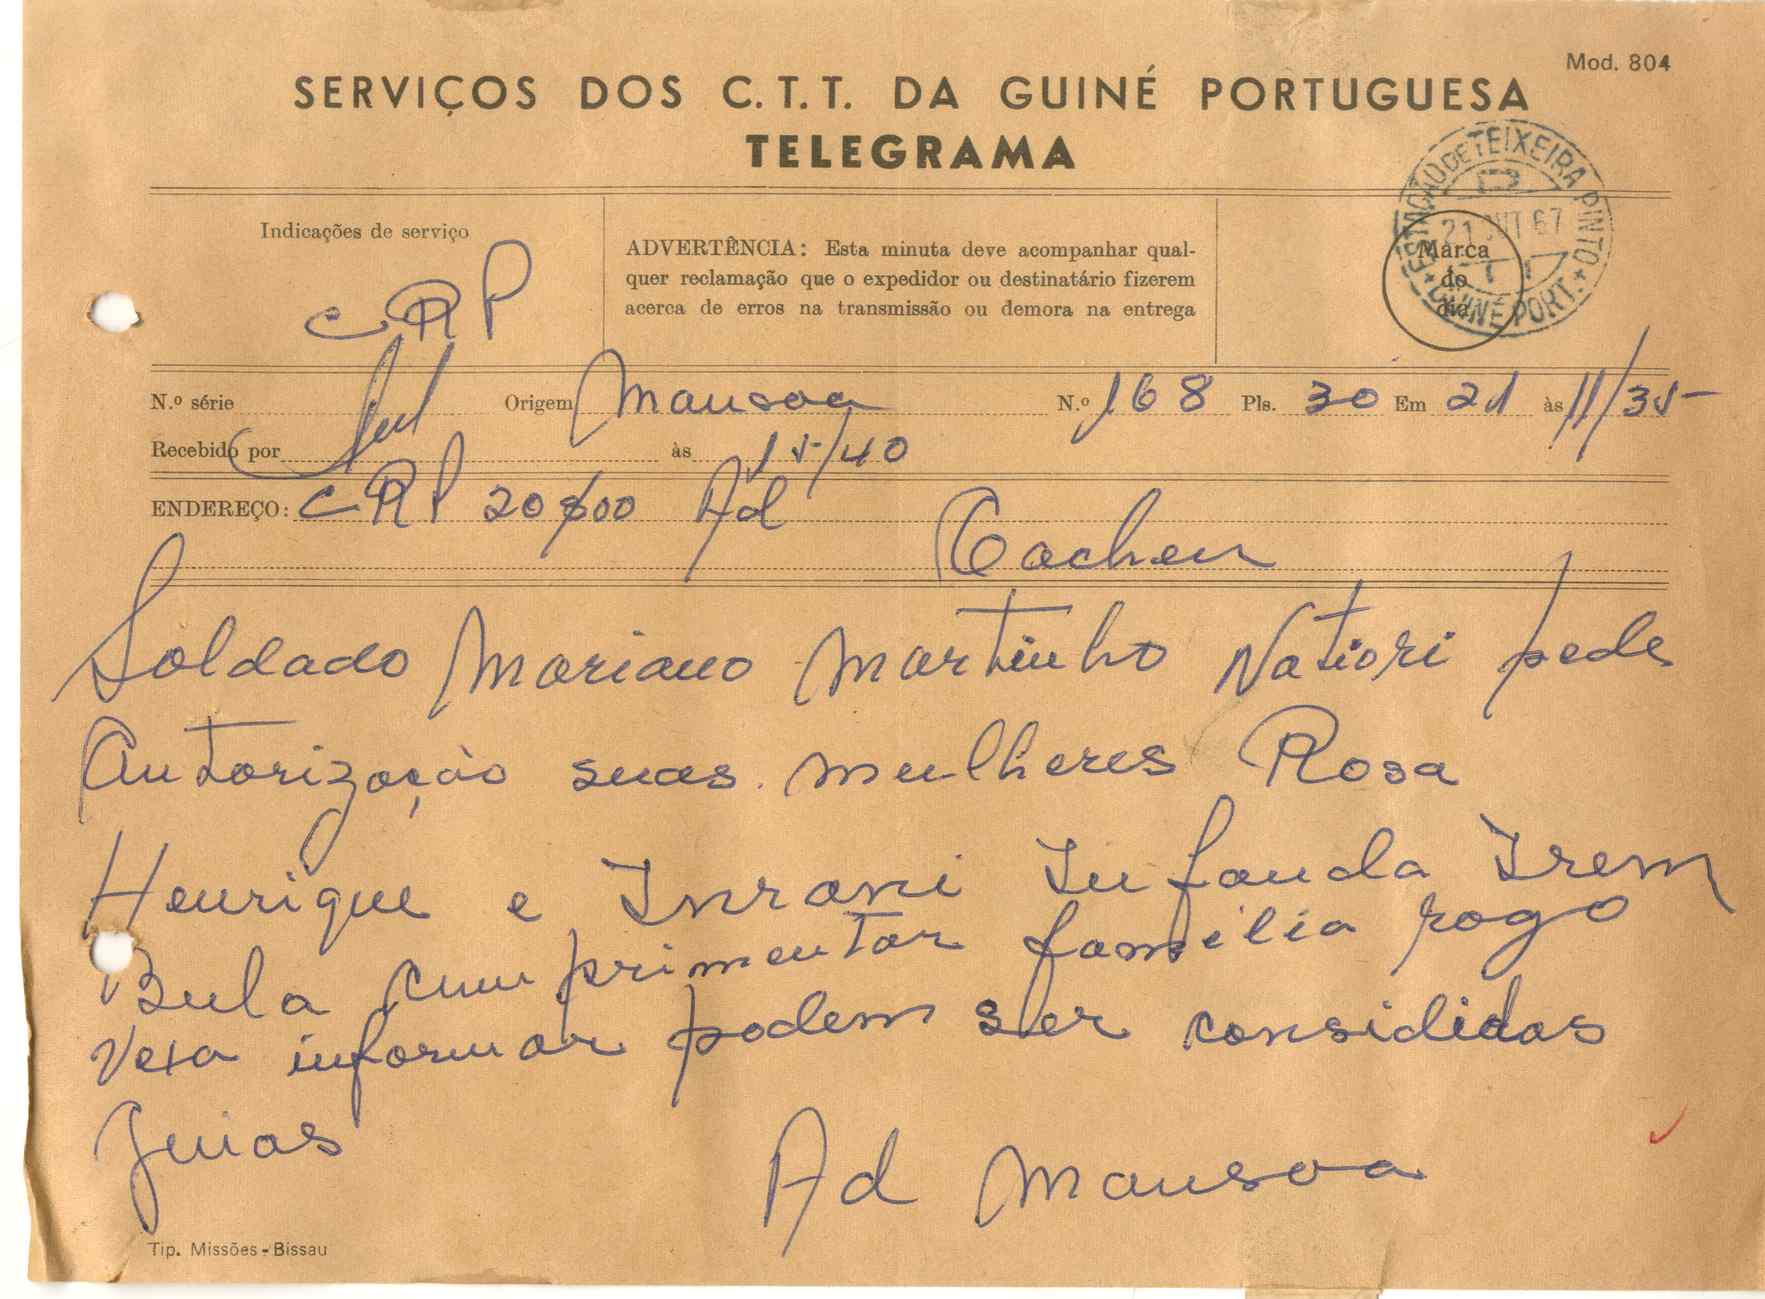 Mod. 804
SERVIÇOS DOS C.T.T. DA GUINÉ PORTUGUESA
TELEGRAMA
Indicações de serviço
CRP
ADVERTÊNCIA: Esta minuta deve acompanhar qual-
quer reclamação que o expedidor ou destinatário fizerem
acerca de erros na transmissão ou demora na entrega
ESTAÇÃO DE TEIXEIRA PINTO
21 OUT 67
GUINÉ PORT.
Marca
do
dia
N.º série Origem Mansoa N.º 168 Pls. 30 Em 21 às 11/35
Recebido por às 15/40
ENDEREÇO: CRP 20$00 Ad
Cacheu
Soldado Mariano Martinho Natiori pede
Autorização suas mulheres Rosa
Henrique e Inrani Infanda Irem
Bula cumprimentar familia rogo
Vexa informar podem ser consididas
Guias
Ad Mansoa
Tip. Missões - Bissau